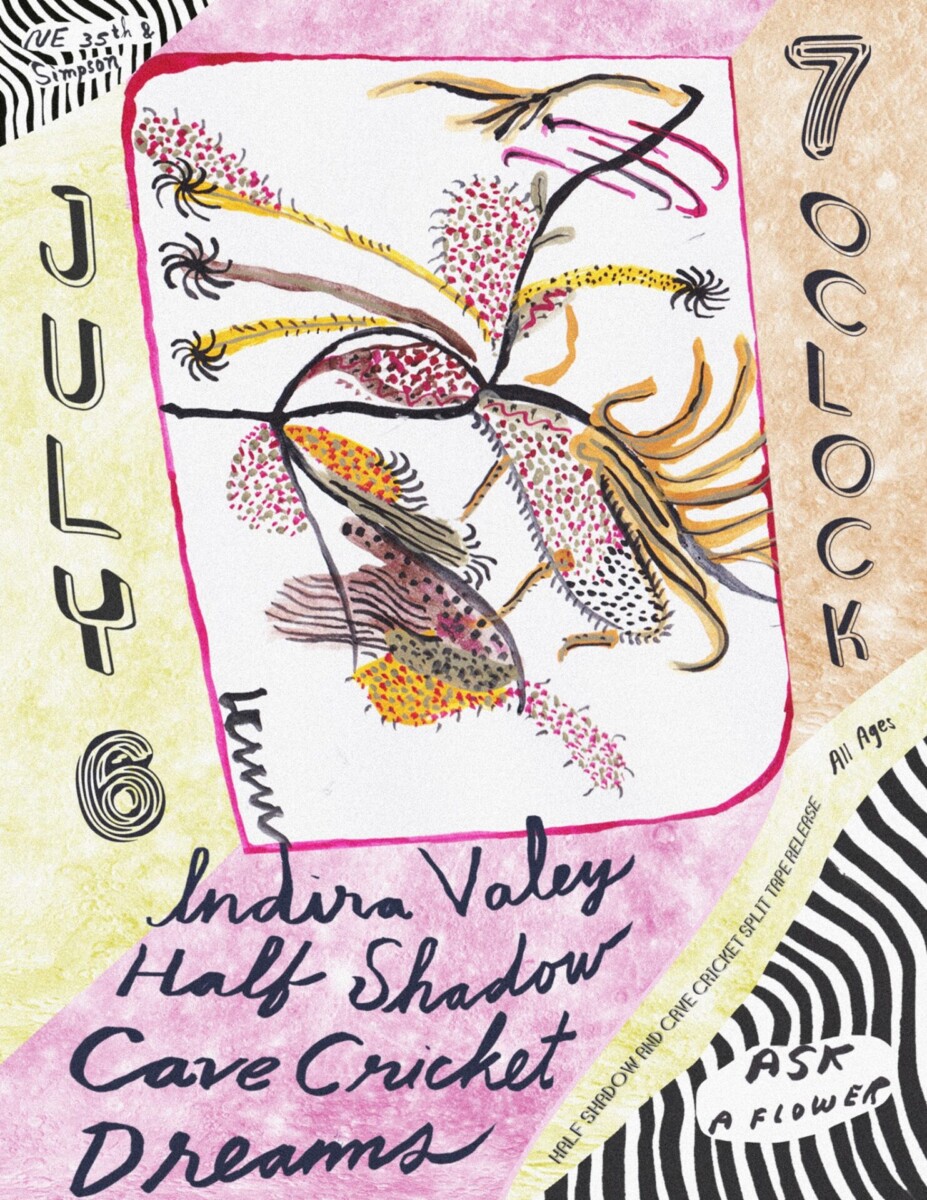 NE 35th &
Simpson
7 OCLOCK
JULY 6
Indira Valey
Half Shadow
Cave Cricket
Dreams
All Ages
HALF SHADOW AND CAVE CRICKET SPLIT TAPE RELEASE
ASK
A FLOWER